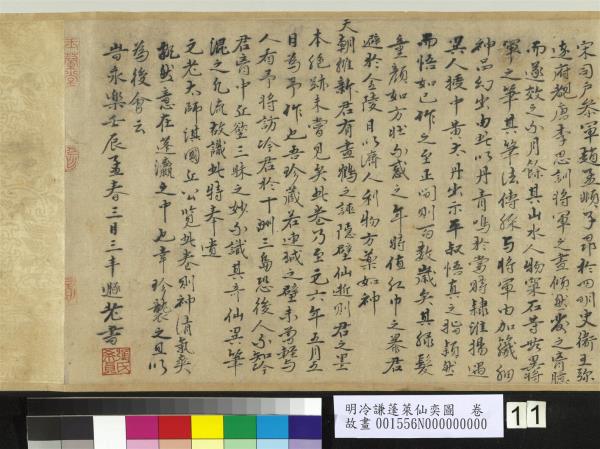 宋司戶參軍趙孟頫子昂於四明史衛王彌
遠府覩唐李思訓將軍之畫傾然發之胷臆
而遂效之不月餘其山水人物窠石等無異將
軍之筆其筆法傅綵与將軍由加纖細
神品幻出由此以丹青鳴於當時隸淮揚遇
異人授中黃大丹出示平叔悟真之指頴然
而悟如已作之至正間則百數歲矣其綠髮
童顏如方壯不惑之年時值紅巾之暴君
避於金陵日以濟人利物方藥如神
天朝維新君有畫鶴之誣隱壁仙逝則君之墨
本絕跡未嘗見矣此卷乃至元六年五月五
日為予作也吾珍藏若連城之璧未嘗輕与
人看予將訪冷君於十洲三島恐後人不知冷
君胷中丘壑三昧之妙不識其奇仙異筆
混之凡流故識此特奉遺
元老太師淇國丘公覽此卷則神清氣爽
飄然意在蓬瀛之中也幸珍襲之且以
為後會云
旹永樂壬辰孟春三日三丰遯老書
明冷謙蓬萊仙奕圖 卷
故畫 001556N000000000
11